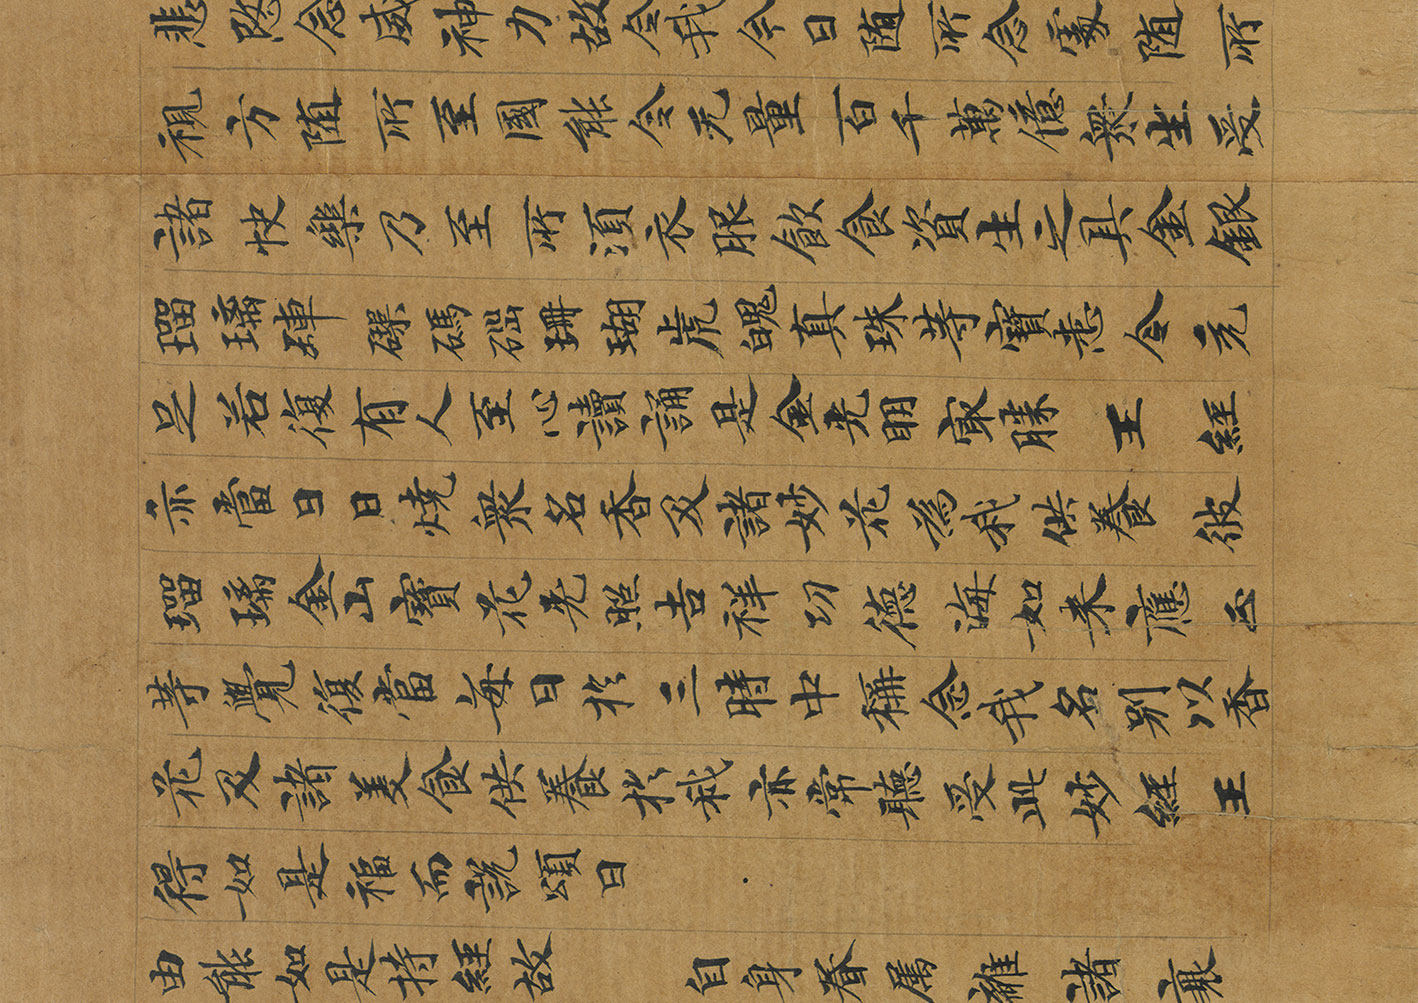 悲愍念威神力故令我今日随所念處随所
視方随所至國能令无量百千萬億衆生受
諸快樂乃至所須衣服飲食資生之具金銀
瑠璃硨磲碼碯珊瑚虎魄真珠等寶悉令充
足若復有人至心讀誦是金光明冣勝王經
亦當日日燒衆名香及諸妙花為我供養彼
瑠璃金山寶花光照吉祥功德海如来應正
等覺復當每日於三時中稱念我名別以香
花及諸美食供養於我亦常聽受此妙經王
得如是福而說頌曰
由能如是持經故 自身眷属離諸衰